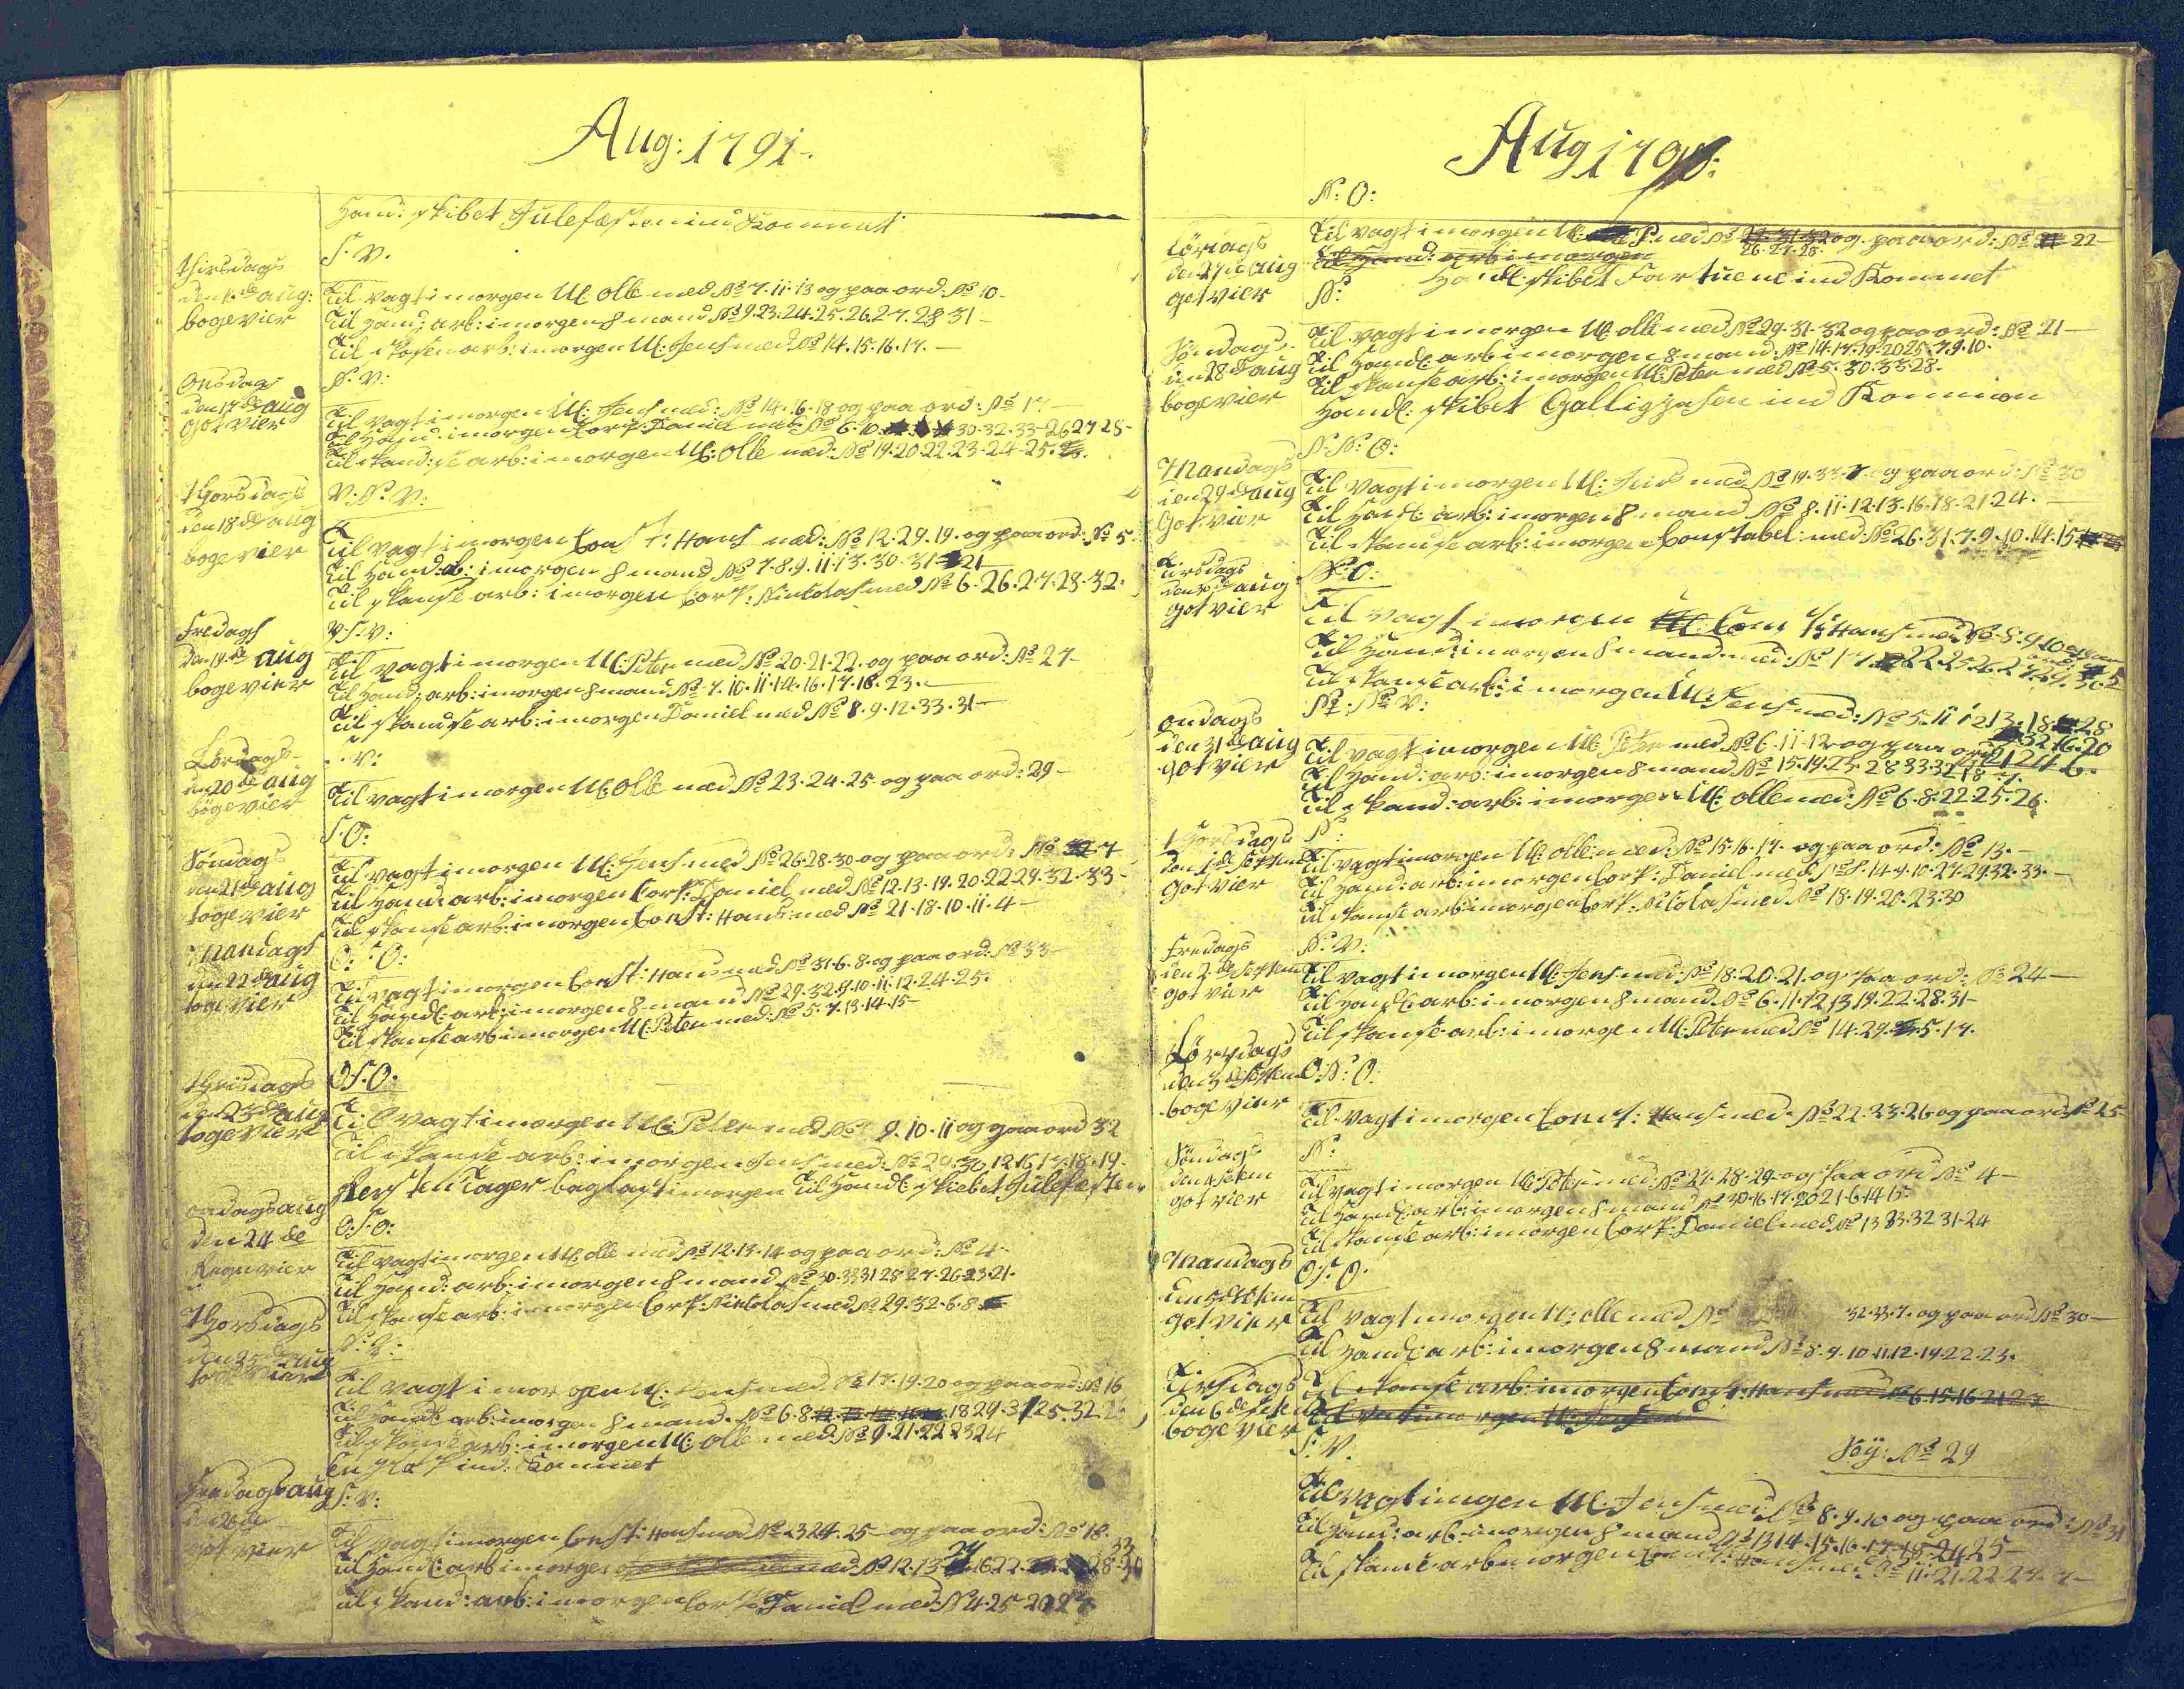 Aug: 1791.
Hand: skibet Julefæsten ind Kommet
thirsdags
den 16de aug:
bogevier
S. V.
Til vagt i morgen U: Olle med No 7. 11. 13 og paa ord: No 10 -
Til Hand: arb: i morgen 8 mand No 9. 23. 24. 25. 26. 27. 28 31 -
Til skansen arb: i morgen U: Jens med No 14. 15. 16. 17. -
Onsdags
den 17de aug
got vier
N. V:
Til vagt i morgen U: Jens med: No 14. 16. 18 og paa ord: No 17 -
Til Hand: i morgen Corp: Daniel med No 6. 10. 30. 32. 33 - 26 27 28 -
Til skand: se arb: i morgen U: Olle med: No 19. 20. 22. 23 - 24 - 25.
thorsdags
den 18de aug
bogevier
V. N. V:
Til vagt i morgen Const: Hans med: No 12. 29. 19. og paa ord: No 5
Til Hand: ab: i morgen 8 mand No 7. 8. 9. 11. 13. 30. 31 21
Til skanse arb: i morgen Corp: Nickolas med No 6. 26. 27. 28. 32.
Fredags
den 19de aug
bogevier
V. S. V:
Til vagt i morgen U: Peter med No 20. 21. 22. og paa ord: No 27 -
Til Hand: arb: i morgen 8 mand No 7. 10. 11. 14. 16. 17. 18. 23. -
Til skandse arb: i morgen Daniel med No 8. 9. 12. 33. 31 -
Lørdags
den 20de aug
bogevier
V:
Til vagt i morgen U: Olle med No 23. 24. 25 og paa ord: 29 -
Søndags
den 21de aug
togevier
S. O:
Til vagt i morgen U: Jens med No 26. 28. 30 og paa ord: No 7
Til Hand: arb: i morgen Corp: Daniel med No 12. 13. 19. 20. 22 29. 32. 33 -
Til skanse arb: i morgen Const: Hans med No 21. 18. 10. 11. 4 -
Mandags
den 22de aug
togevier
O: S: O:
Til vagt i morgen Const: Hans med No 31. 6. 8. og paa ord: No 33 -
Til Handl: arb: i morgen 8 mand No 29. 32. 9. 10. 11. 12. 24. 25.
Til skanse arb i morgen U: Peter med: No 5. 7. 13. 14. 15 -
thrisdags
den 23de aug
togevier
O S. O.
Til vagt i morgen U: Peter med No 9. 10. 11 og paa ord 32
Til skanse arb: i morgen Jens med: No 29. 30. 12 16 17. 18. 19.
Kersten Tager baglast i morgen Til Handl: skiebet Julefæsten
ondags aug
den 24de
Regnvier
O. S. O:
Til vagt i morgen U: olle med No 12. 13. 14 og paa ord: No 4 -
Til Hand: arb: i morgen 8 mand No 30. 33 31 28 27. 26. 23. 21.
Til skanse arb: i morgen Corp: Nickolas med No 29. 32. 6. 8
Thorsdags
den 25de aug
Til vagt i morgen U: Jens med No 17. 19. 20 og paa ord: No 16
Til Handl: arb: i morgen 8 mand. No 6. 8 18 29. 31 25. 32
Til skanse arb: i morgen U: olle med No 9. 21. 22 23 24
ind: Kommet
Fredags aug
den 26de
got vier
S. V:
Til vagt i morgen Const: Hans med No 23 24. 25 og paa ord: No 18.
Til Handl: arb i morgen med No 12. 13 16 22. 28. 30
Til skand: arb: i morgen Corp: Daniel med No 4. 25 20 27
Aug 1791:
N: O:
Lørdags
den 27de aug
got vier
Til vagt i morgen U: P: med No 29. 31. 32 og paa ord: No 22 -
26. 27. 28.
Til Hand: arb i morgen
Handl: skibet Fortuene ind Kommet
Søndags
den 28de aug
bogevier
N:
Til vagt i morgen U: olle med No 29. 31. 32 og paa ord: No 21 -
Til Handl: arb i morgen 8 mand: No 14. 17. 19. 20 25. 7. 9. 10.
Til skanse arb: i morgen U: Peter med No 5. 30. 33 28.
Handl: skibet Gallighasen ind Kommen
Mandags
den 29de aug
Got vier
N. N: O:
Til vagt i morgen U: Jens med No 19. 33. 7. og paa ord: No 30
Til Handl: arb: i morgen 8 mand No 8. 11. 12. 13. 16. 18. 21 24.
Til skanse arb: i morgen Constabel: med: No 26. 31. 7. 9. 10. 14. 15
Tirsdags
den 30de aug
got vier
N: O:
Til vagt i morgen Const: Hans med No 8. 9 10 og paa ord: 5
Til Handl: i morgen 8 mand med: No 17. 22 25 26 27 29. 30
Til skanse arb: i morgen U: Jens med: No 5. 11 12 13. 18 28
ondags
den 31de aug
got vier
N: N: V:
Til vagt i morgen U: Peter med No 6. 11. 12 og paa ord
Til Hand: arb: i morgen 8 mand No 15. 19. 23. 28 33 32
Til skand: arb: i morgen U: olle med: No 6. 8. 22. 25. 26.
thorsdags
den 1de septem
got vier
N:
Til vagt i morgen U: olle med: No 15. 16. 17. og paa ord: No 13. -
Til Hand: arb: i morgen Corp: Daniel med No 8. 14. 9. 10. 27. 29 32. 33. -
Til skanse arb: i morgen Corp: Nicolas med No 18. 19. 20. 23. 30
Fredags
den 2de septem
got vier
N: V:
Til vagt i morgen U: Jens med: No 18. 20. 21. og paa ord: No 24 -
Til Handl: arb: i morgen 8 mand No 6. 11. 12 13 19. 22. 28. 31 -
Til skanse arb: i morgen U: Peter med No 14. 29. 5. 17.
Lørdags
den 3de septem
bogevier
O: N: O:
Til vagt i morgen Const: Hans med No 22. 23. 26 og paa ord No 25
Søndags
den 4 setem
got vier
N:
Til vagt i morgen U: Peter med: No 27. 28. 29 og paa ord No 4 -
Til Handl: arb: i morgen 8 mand No 30. 16. 17. 20 21. 6 14 15.
Til skanse arb: i morgen Corp: Daniel med No 13 33. 32 31 - 24
Mandags
den 5 settem
got vier
O S. O.
Til vagt i morgen U: olle med No 32. 33. 7. og paa ord No 30 -
Til Handl: arb: i morgen 8 mand No 8. 9. 10. 11. 12. 19. 22. 23.
Til skanse arb: i morgen Const: Hans med No 6. 15. 16 21 27
Tirsdags
den 6 de setem
bogevier
Til vagt i morgen U: Jens med
S. V.
Syg: No 29
Til vagt i mgen U: Jens med No 8. 9. 10 og paa ord: No 31
Til Hand: arb: i morgen 8 mand No 13 14. 15. 16. 17. 18. 24 25 -
Til skanse arb morgen Const: Hans med No 11. 21. 22 27. 7 -